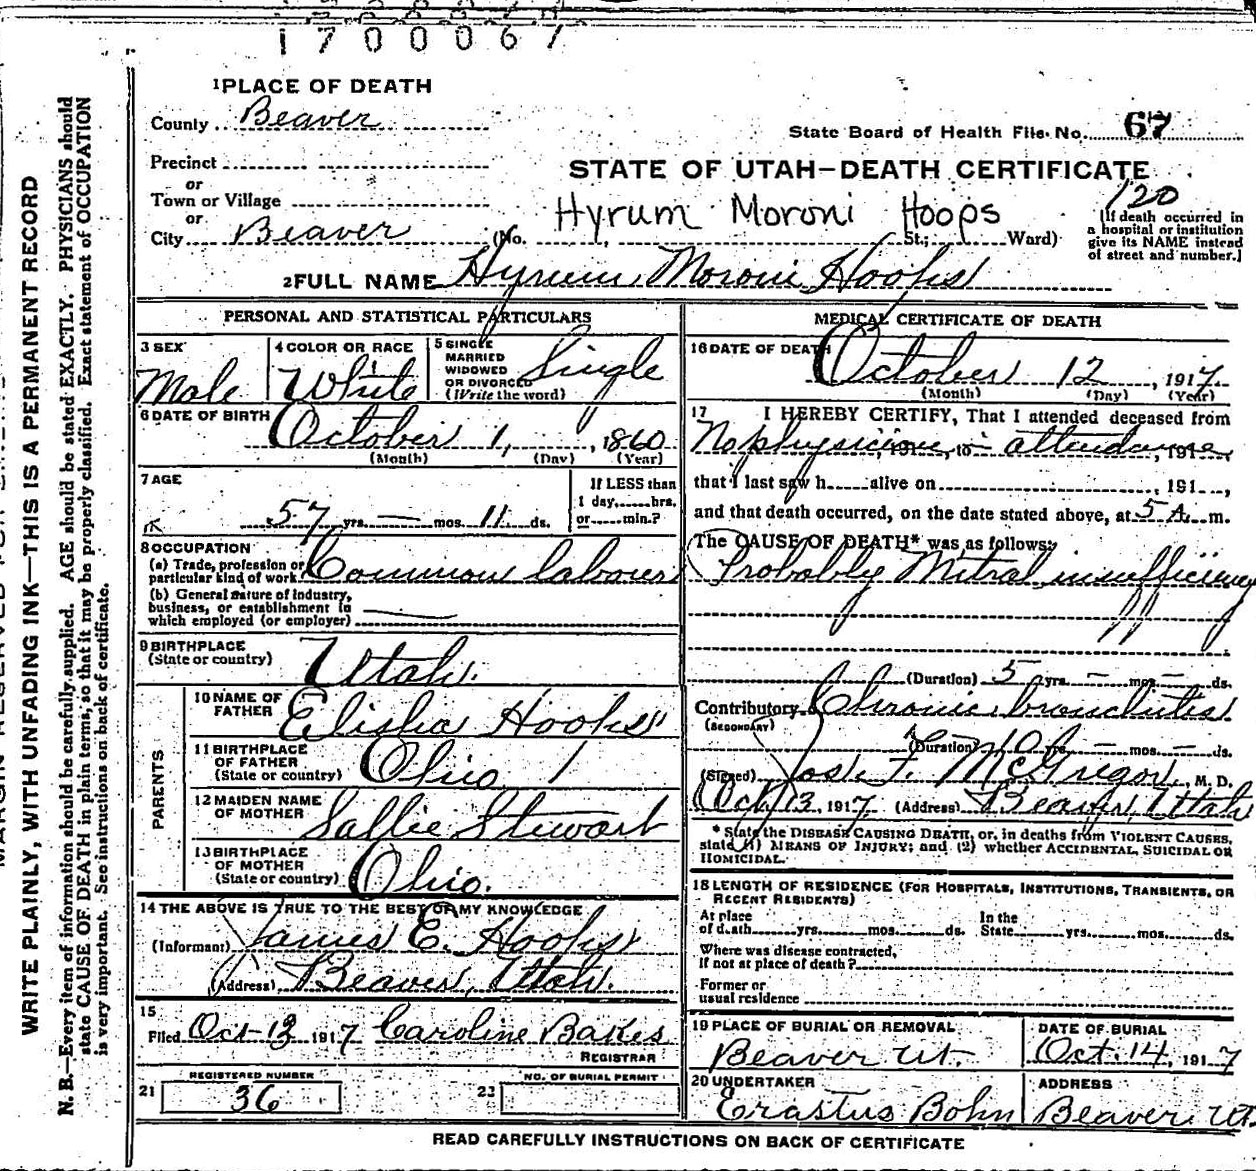 1700067
1 PLACE OF DEATH
County Beaver
State Board of Health File No. 67
Precinct
STATE OF UTAH—DEATH CERTIFICATE
or
Town or Village
120
or
Hyrum Moroni Hoops
City Beaver (No. , St.; Ward)
[If death occurred in
a hospital or institution
give its NAME instead
of street and number.]
2 FULL NAME Hyrum Moroni Hoops
PERSONAL AND STATISTICAL PARTICULARS
3 SEX Male
4 COLOR OR RACE White
5 SINGLE
MARRIED
WIDOWED
OR DIVORCED
(Write the word) Single
6 DATE OF BIRTH October 1, 1860
(Month) (Day) (Year)
7 AGE
57 yrs. — mos. 11 ds.
If LESS than
1 day, hrs.
or min.?
8 OCCUPATION
(a) Trade, profession or
particular kind of work Common laborer
(b) General nature of industry,
business, or establishment in
which employed (or employer) —
9 BIRTHPLACE
(State or country) Utah.
PARENTS
10 NAME OF
FATHER Elisha Hoops
11 BIRTHPLACE
OF FATHER
(State or country) Ohio
12 MAIDEN NAME
OF MOTHER Sallie Stewart
13 BIRTHPLACE
OF MOTHER
(State or country) Ohio.
14 THE ABOVE IS TRUE TO THE BEST OF MY KNOWLEDGE
(Informant) James E. Hoops
(Address) Beaver, Utah.
15
Filed Oct-13 1917 Caroline Bakes
REGISTRAR
REGISTERED NUMBER
21 36
NO. OF BURIAL PERMIT
22
MEDICAL CERTIFICATE OF DEATH
16 DATE OF DEATH
October 12, 1917
(Month) (Day) (Year)
17 I HEREBY CERTIFY, That I attended deceased from
No physician, 191 , to in attendance, 191 ,
that I last saw h alive on , 191 ,
and that death occurred, on the date stated above, at 5 A. m.
The CAUSE OF DEATH* was as follows:
Probably Mitral insufficiency
(Duration) 5 yrs. — mos. — ds.
Contributory Chronic bronchitis
(SECONDARY)
(Duration) 10 yrs. — mos. — ds.
(Signed) Jos. F. McGregor, M. D.
Oct 13, 1917 (Address) Beaver, Utah
* State the DISEASE CAUSING DEATH, or, in deaths from VIOLENT CAUSES,
state (1) MEANS OF INJURY; and (2) whether ACCIDENTAL, SUICIDAL OR
HOMICIDAL.
18 LENGTH OF RESIDENCE (FOR HOSPITALS, INSTITUTIONS, TRANSIENTS, OR
RECENT RESIDENTS)
At place
of death yrs. mos. ds.
In the
State yrs. mos. ds.
Where was disease contracted,
If not at place of death?
Former or
usual residence
19 PLACE OF BURIAL OR REMOVAL
Beaver Ut.
DATE OF BURIAL
Oct. 14, 1917
20 UNDERTAKER
Erastus Bohn
ADDRESS
Beaver, Ut.
READ CAREFULLY INSTRUCTIONS ON BACK OF CERTIFICATE
WRITE PLAINLY, WITH UNFADING INK—THIS IS A PERMANENT RECORD
N. B.—Every item of information should be carefully supplied. AGE should be stated EXACTLY. PHYSICIANS should
state CAUSE OF DEATH in plain terms, so that it may be properly classified. Exact statement of OCCUPATION
is very important. See instructions on back of certificate.